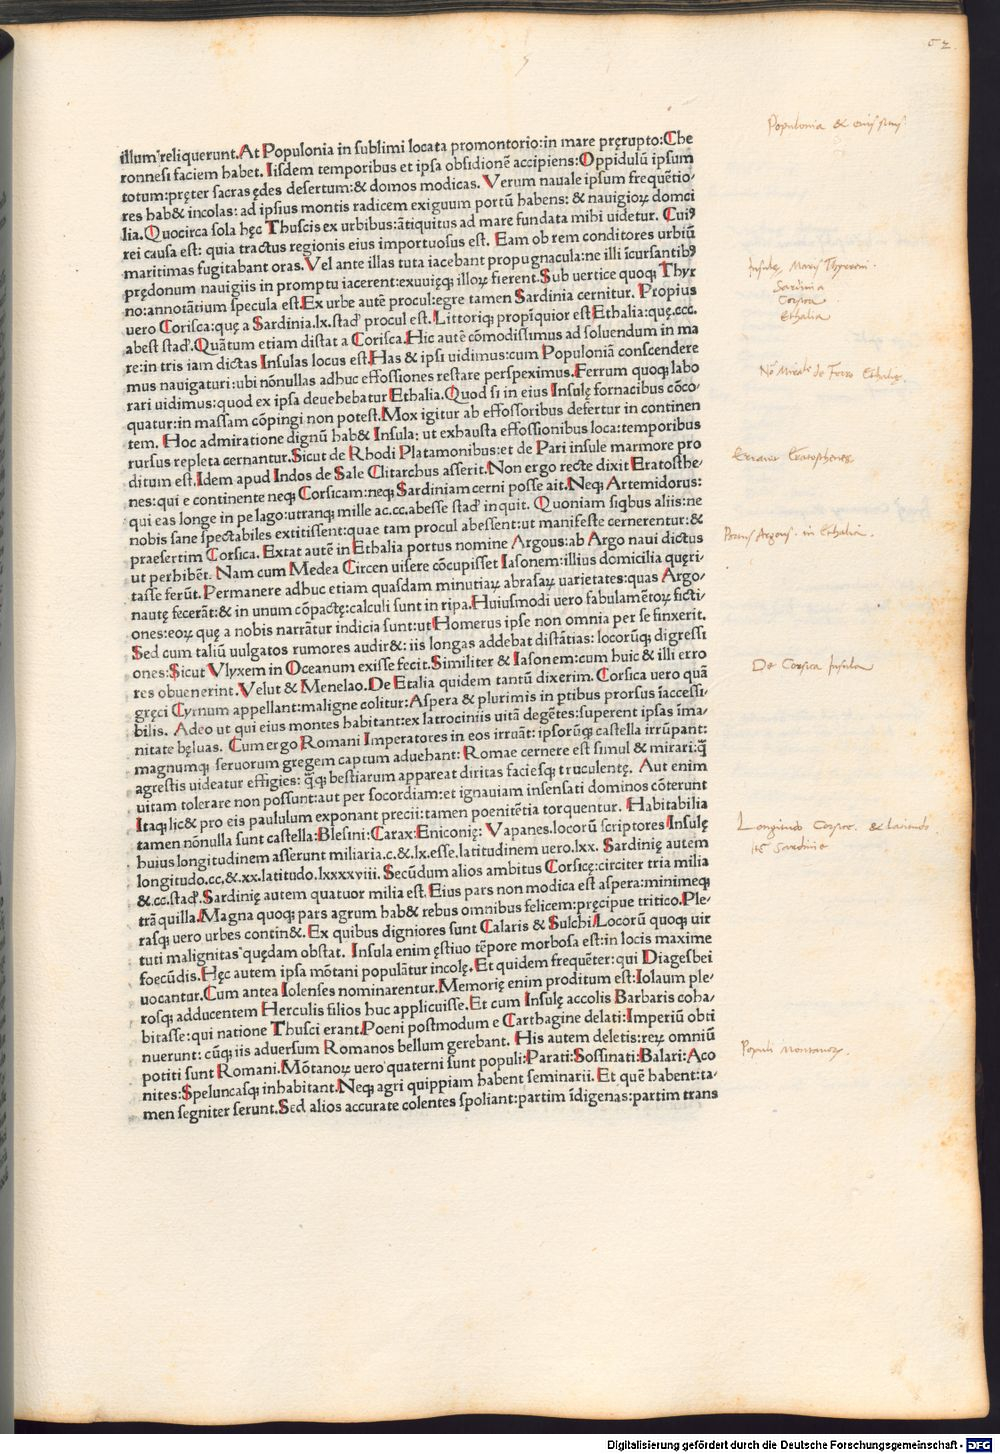 62.
illum reliquerunt. At Populonia in sublimi locata promontorio: in mare pręrupto: Che
ronnesi faciem habet. Iisdem temporibus et ipsa obsidionē accipiens: Oppidulū ipsum
totum: pręter sacras ędes desertum: & domos modicas. Verum nauale ipsum frequētio-
res hab& incolas: ad ipsius montis radicem exiguum portū habens: & nauigioꝝ domci
lia. Quocirca sola hęc Thuscis ex urbibus: ātiquitus ad mare fundata mihi uidetur. Cuiꝰ
rei causa est: quia tractus regionis eius importuosus est. Eam ob rem conditores urbiū
maritimas fugitabant oras. Vel ante illas tuta iacebant propugnacula: ne illi īcursantibꝰ
prędonum nauigiis in promptu iacerent: exuuięqꝫ illoꝝ fierent. Sub uertice quoqꝫ Thyr
no: annotātium specula est. Ex urbe autē procul: egre tamen Sardinia cernitur. Propius
uero Corisca: quę a Sardinia .lx. stad' procul est. Littoriqꝫ propīquior est Ethalia: quę .ccc.
abest stad'. Quātum etiam distat a Corisca. Hic autē cōmodissimus ad soluendum in ma
re: in tris iam dictas Insulas locus est. Has & ipsi uidimus: cum Populoniā conscendere
mus nauigaturi: ubi nōnullas adhuc effossiones restare perspeximus. Ferrum quoqꝫ labo
rari uidimus: quod ex ipsa deuehebatur Ethalia. Quod si in eius Insulę fornacibus cōco-
quatur: in massam cōpingi non potest. Mox igitur ab effossoribus defertur in continen
tem. Hoc admiratione dignū hab& Insula: ut exhausta effossionibus loca: temporibus
rursus repleta cernantur. Sicut de Rhodi Platamonibus: et de Pari insule marmore pro
ditum est. Idem apud Indos de Sale Clitarchus asserit. Non ergo recte dixit Eratosthe-
nes: qui e continente neqꝫ Corsicam: neqꝫ Sardiniam cerni posse ait. Neqꝫ Artemidorus:
qui eas longe in pelago: utranqꝫ mille ac .cc. abesse stad' inquit. Quoniam siqbus aliis: ne
nobis sane spectabiles extitissent: quae tam procul abessent: ut manifeste cernerentur: &
praesertim Corsica. Extat autē in Ethalia portus nomine Argous: ab Argo naui dictus
ut perhibēt. Nam cum Medea Circen uisere cōcupisset Iasonem: illius domicilia quęri-
tasse ferūt. Permanere adhuc etiam quasdam minutiaꝝ abrasaꝝ uarietates: quas Argo-
nautę fecerāt: & in unum cōpactę: calculi sunt in ripa. Huiusmodi uero fabulamētoꝝ ficti-
ones: eoꝝ quę a nobis narrātur indicia sunt: ut Homerus ipse non omnia per se finxerit.
Sed cum taliū uulgatos rumores audir&: iis longas addebat distātias: locorūqꝫ digressi
ones: Sicut Vlyxem in Oceanum exisse fecit. Similiter & Iasonem: cum huic & illi erro
res obuenerint. Velut & Menelao. De Etalia quidem tantū dixerim. Corsica uero quā
gręci Cyrnum appellant: maligne colitur: Aspera & plurimis in ptibus prorsus īaccessi-
bilis. Adeo ut qui eius montes habitant: ex latrociniis uitā degētes: superent ipsas īma-
nitate bęluas. Cum ergo Romani Imperatores in eos irruāt: ipsorūqꝫ castella irrūpant:
magnumqꝫ seruorum gregem captum aduehant: Romae cernere est simul & mirari: q̄
agrestis uideatur effigies: q̄qꝫ bestiarum appareat diritas faciesqꝫ truculentę. Aut enim
uitam tolerare non possunt: aut per socordiam: et ignauiam insensati dominos cōterunt
Itaqꝫ lic& pro eis paululum exponant precii: tamen poenitētia torquentur. Habitabilia
tamen nōnulla sunt castella: Blesini: Carax: Eniconię: Vapanes. locorū scriptores Insulę
huius longitudinem asserunt miliaria .c. & .lx. esse. latitudinem uero .lxx. Sardinię autem
longitudo .cc. & .xx. latitudo .lxxxxviii. Secūdum alios ambitus Corsicę: circiter tria milia
& .cc. stad'. Sardinię autem quatuor milia est. Eius pars non modica est aspera: minimeqꝫ
trāquilla. Magna quoqꝫ pars agrum hab& rebus omnibus felicem: pręcipue tritico. Ple-
rasqꝫ uero urbes contin&. Ex quibus digniores sunt Calaris & Sulchi. Locorū quoqꝫ uir
tuti malignitas quędam obstat. Insula enim ęstiuo tēpore morbosa est: in locis maxime
foecūdis. Hęc autem ipsa mōtani populātur incolę. Et quidem frequēter: qui Diagesbei
uocantur. Cum antea Iolenses nominarentur. Memorię enim proditum est: Iolaum ple-
rosqꝫ adducentem Herculis filios huc applicuisse. Et cum Insulę accolis Barbaris coha-
bitasse: qui natione Thusci erant. Poeni postmodum e Carthagine delati: Imperiū obti
nuerunt: cūqꝫ iis aduersum Romanos bellum gerebant. His autem deletis: reꝝ omniū
potiti sunt Romani. Mōtanoꝝ uero quaterni sunt populi: Parati: Sossinati: Balari: Aco
nites: Speluncasqꝫ inhabitant. Neqꝫ agri quippiam habent seminarii. Et quē habent: ta-
men segniter serunt. Sed alios accurate colentes spoliant: partim īdigenas: partim trans
Populonia & eius situs
Insulę Maris Thyreni.
Sardinia
Corsica
Ethalia
Nō Mirabile de Ferro Ethalię.
Erratur Eratosthenes
Portus Argous. in Ethalia.
De Corsica Insula
Longitudo Corsicę. & latitudo
itē Sardinię
Populi Montanoꝝ.
Digitalisierung gefördert durch die Deutsche Forschungsgemeinschaft - DFG